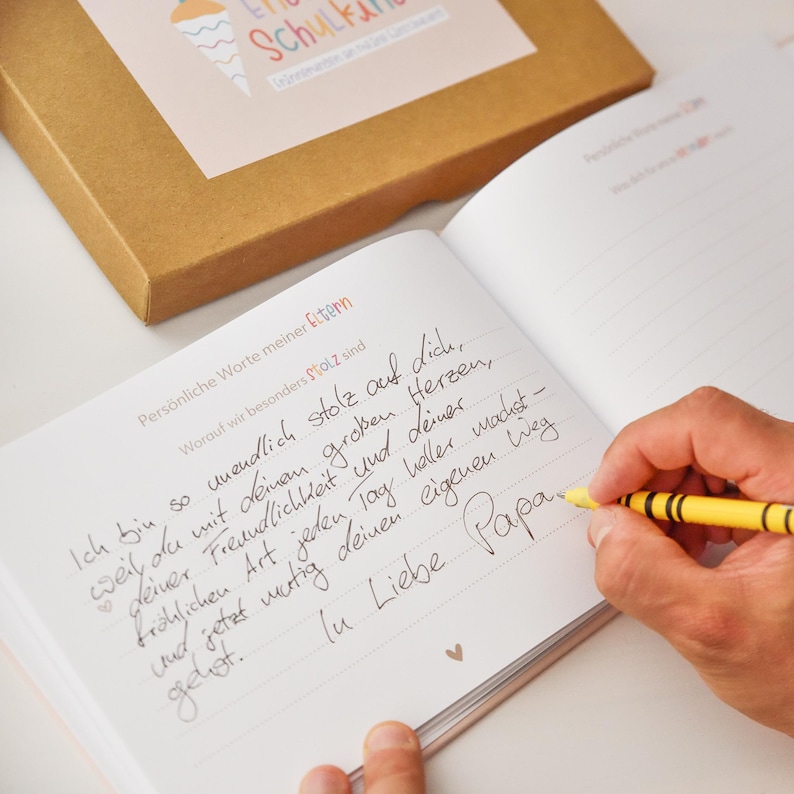 Schulkind
Persönliche Worte meiner Eltern
Worauf wir besonders stolz sind
Ich bin so unendlich stolz auf dich,
weil du mit deinem großen Herzen,
deiner Freundlichkeit und deiner
fröhlichen Art jeden Tag heller machst –
und jetzt mutig deinen eigenen Weg
gehst.
In Liebe Papa
Persönliche Worte meiner Eltern
Was dich für uns so besonders macht